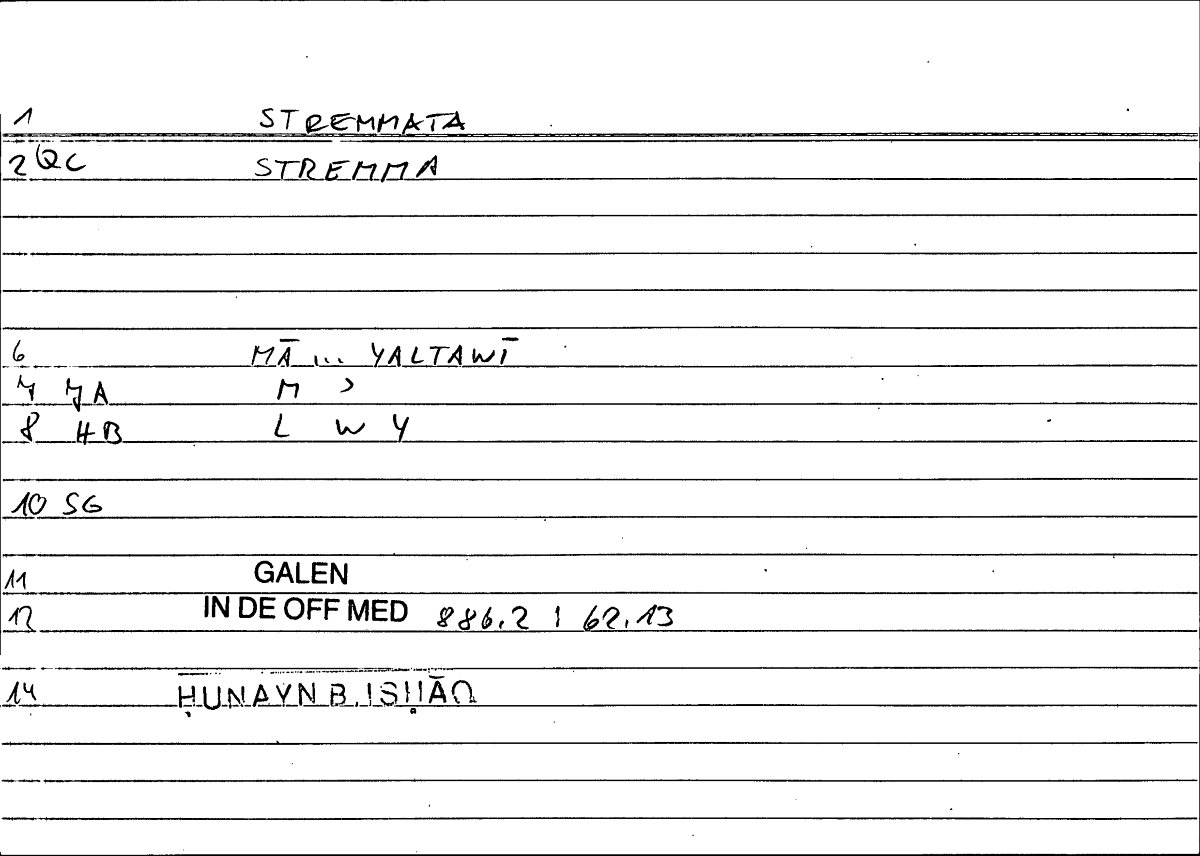 1 STREMMATA
2 QC STREMMA
6 MĀ ... YALTAWĪ
7 7A M ʾ
8 HB L W Y
10 SG
11 GALEN
12 IN DE OFF MED 886.2 | 62.13
14 ḤUNAYN B. ISḤĀQ